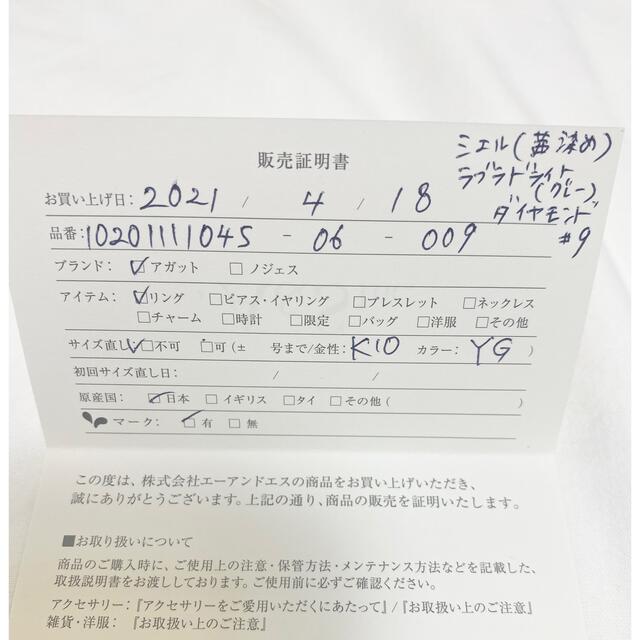 ミエル(茜染め)
ラブラドライト
(グレー)
ダイヤモンド
#9
販売証明書
お買い上げ日: 2021 / 4 / 18
品番: 10201111045 - 06 - 009
ブランド: ☑アガット □ノジェス
アイテム: ☑リング □ピアス・イヤリング □ブレスレット □ネックレス
□チャーム □時計 □限定 □バッグ □洋服 □その他
サイズ直し: ☑不可 □可(± 号まで/金性: K10 カラー: YG )
初回サイズ直し日: / /
原産国: ☑日本 □イギリス □タイ □その他( )
マーク: ☑有 □無
この度は、株式会社エーアンドエスの商品をお買い上げいただき、
誠にありがとうございます。上記の通り、商品の販売を証明いたします。
■お取り扱いについて
商品のご購入時に、ご使用上の注意・保管方法・メンテナンス方法などを記載した、
取扱説明書をお渡ししております。ご使用前に必ずご確認ください。
アクセサリー:『アクセサリーをご愛用いただくにあたって』/『お取扱い上のご注意』
雑貨・洋服: 『お取扱い上のご注意』